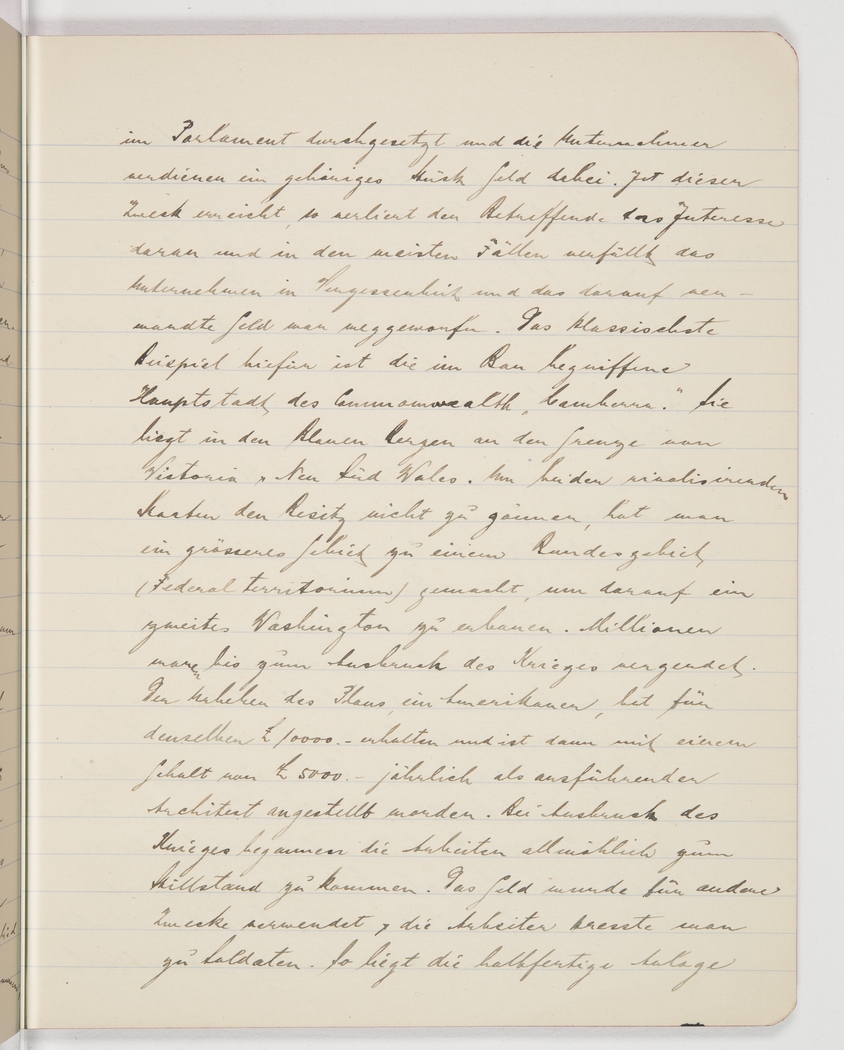 im Parlament durchgesetzt und die Unternehmer
verdienen ein gehöriges Stück Geld dabei. Ist dieser
Zweck erreicht, so verliert der Betreffende das Interesse
daran und in den meisten Fällen verfällt das
Unternehmen in Vergessenheit und das darauf ver-
wandte Geld war weggeworfen. Das klassischste
Beispiel hiefür ist die im Bau begriffene
Hauptstadt des Commonwealth, "Camberra." Sie
liegt in den Blauen Bergen an der Grenze von
Victoria & Neu Süd Wales. Um beiden rivalisirenden
Staaten den Besitz nicht zu gönnen, hat man
ein grösseres Gebiet zu einem Bundesgebiet
(Federal territorium) gemacht, um darauf ein
zweites Washington zu erbauen. Millionen
waren bis zum Ausbruch des Krieges vergeudet.
Der Urheber des Plans, ein Amerikaner, hat für
denselben £ 10000.- erhalten und ist dann mit einem
Gehalt von £ 5000.- jährlich als ausführender
Architect angestellt worden. Bei Ausbruch des
Krieges begannen die Arbeiten allmählich zum
Stillstand zu kommen. Das Geld wurde für andere
Zwecke verwendet & die Arbeiter presste man
zu Soldaten. So liegt die halbfertige Anlage